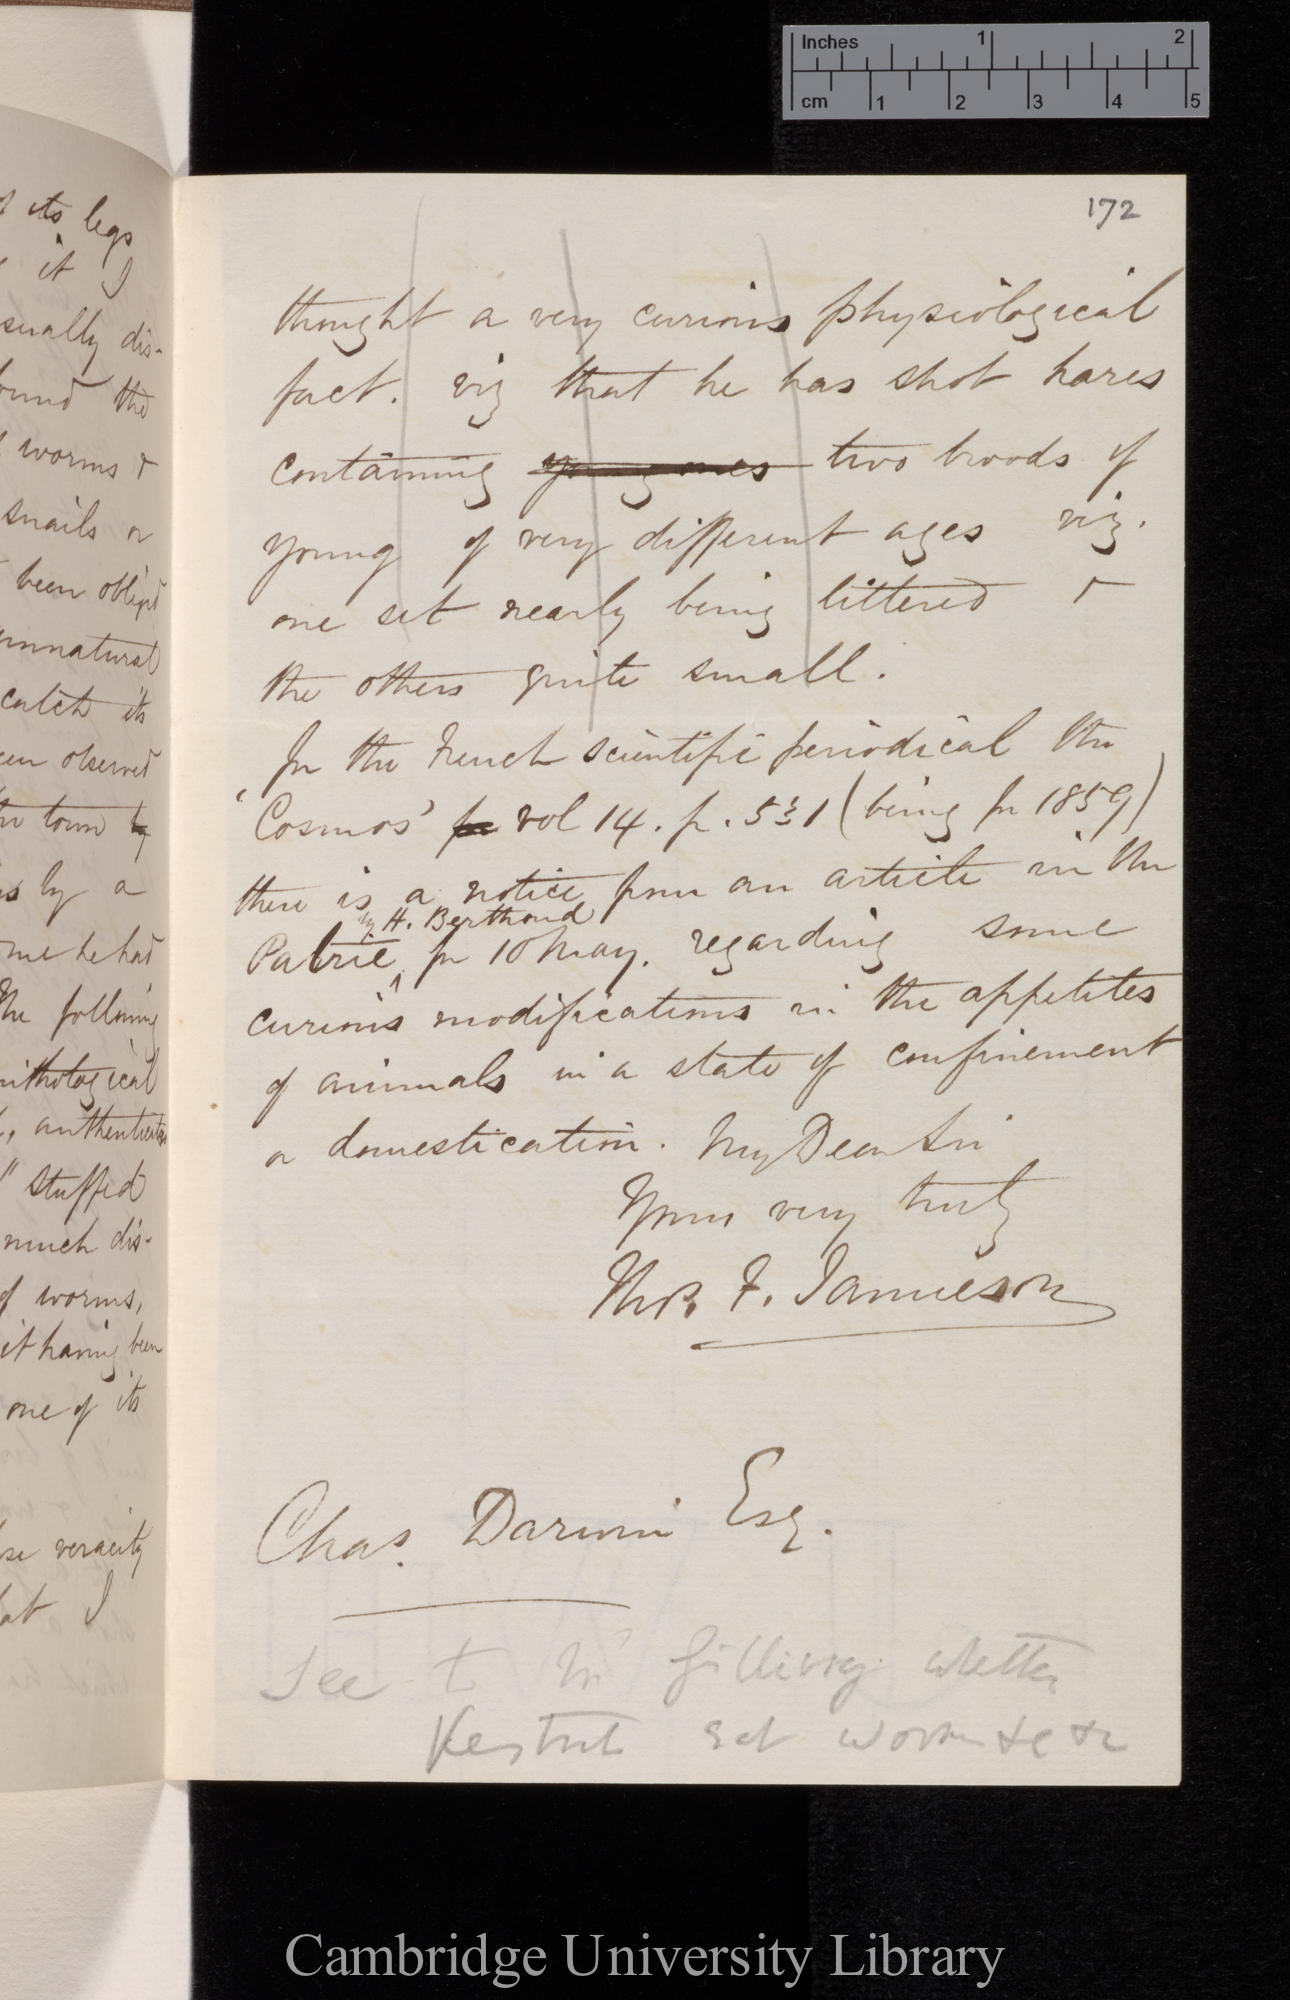 Inches 1 2
cm 1 2 3 4 5
its legs
it I
sually dis-
ound the
worms &
snails or
been obliged
unnatural
catch its
een observed
the town by
by a
me he had
The following
nithological
authenticated
" stuffed
much dis-
of worms,
it having been
one of its
veracity
at I
172
thought a very curious physiological
fact. viz that he has shot hares
containing young ones two broods of
young of very different ages viz.
one set nearly being littered &
the others quite small.
In the French scientific periodical the
'Cosmos' for vol 14. p. 531 (being for 1859)
there is a notice from an article in the
by H. Berthoud
Patrie for 10 May. regarding some
curious modifications in the appetites
of animals in a state of confinement
or domestication. My Dear Sir
Yours very truly
Thos. F. Jamieson
Chas. Darwin Esq.
See to Mc Gillivray whether
Kestrels eat worms &c &c
Cambridge University Library